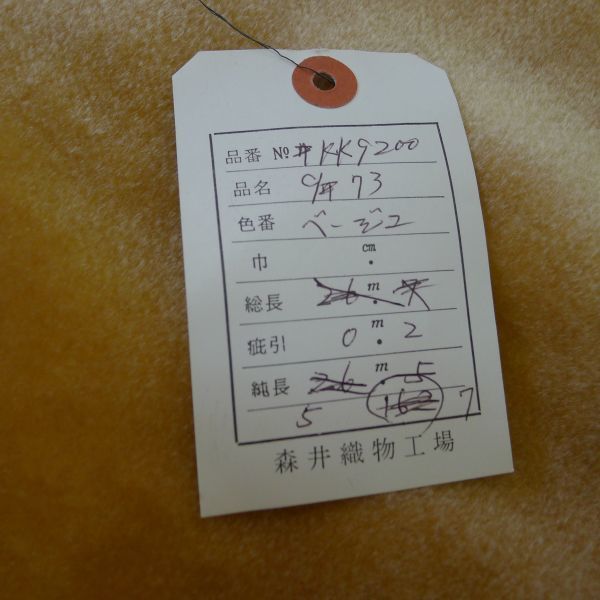 品番 № #KK9200
品名 C/# 73
色番 ベージュ
巾 cm .
総長 26 m .
疵引 0 m . 2
純長 26 m . 5
5 162 7
森井織物工場